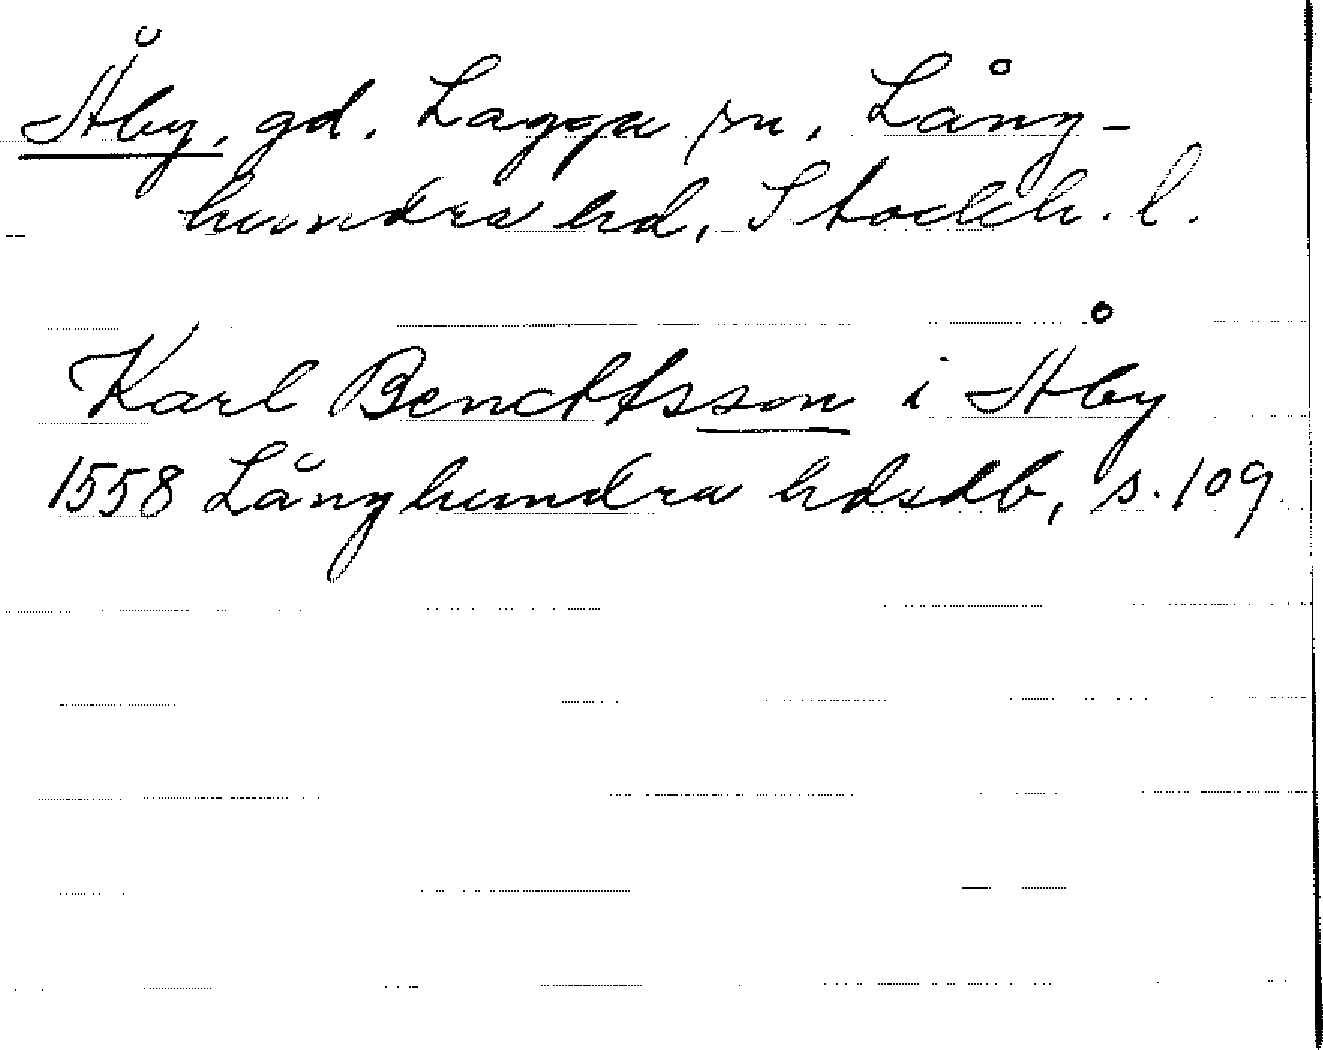 Åby, gd. Lagga sn, Lång-
hundra hd, Stockh. l.
Karl Bencttsson i Åby
1558 Långhundra hdsdb, s. 109